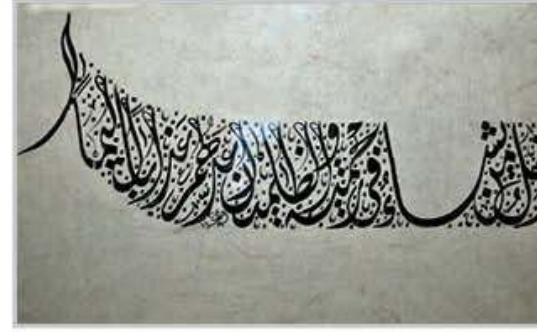 من يشاء في رحمته والظالمين أعد لهم عذابا أليما